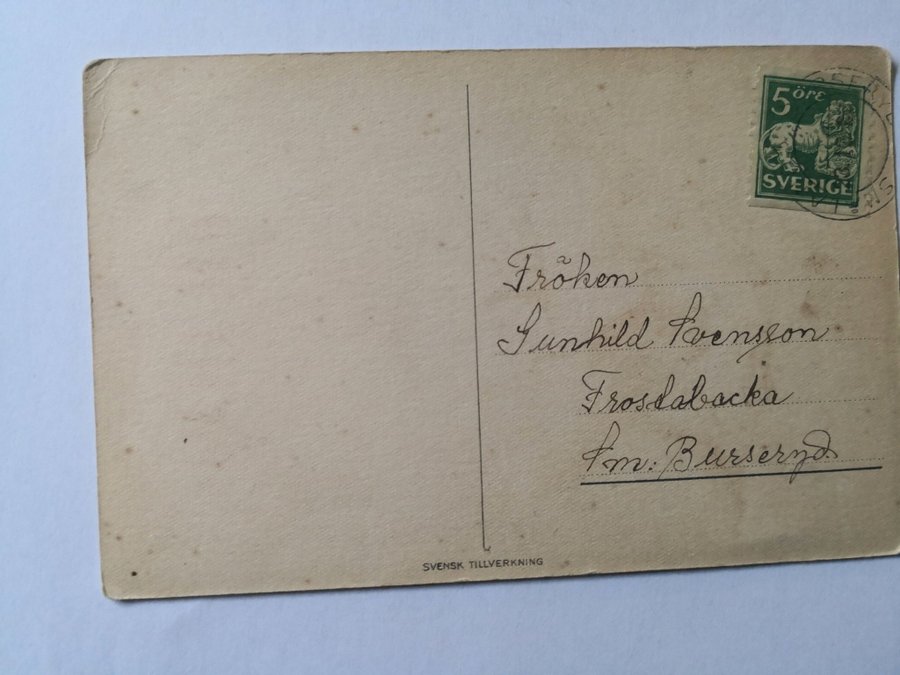 5 öre
SVERIGE
Fröken
Gunhild Svensson
Frosdabacka
Sm: Burseryd.
SVENSK TILLVERKNING